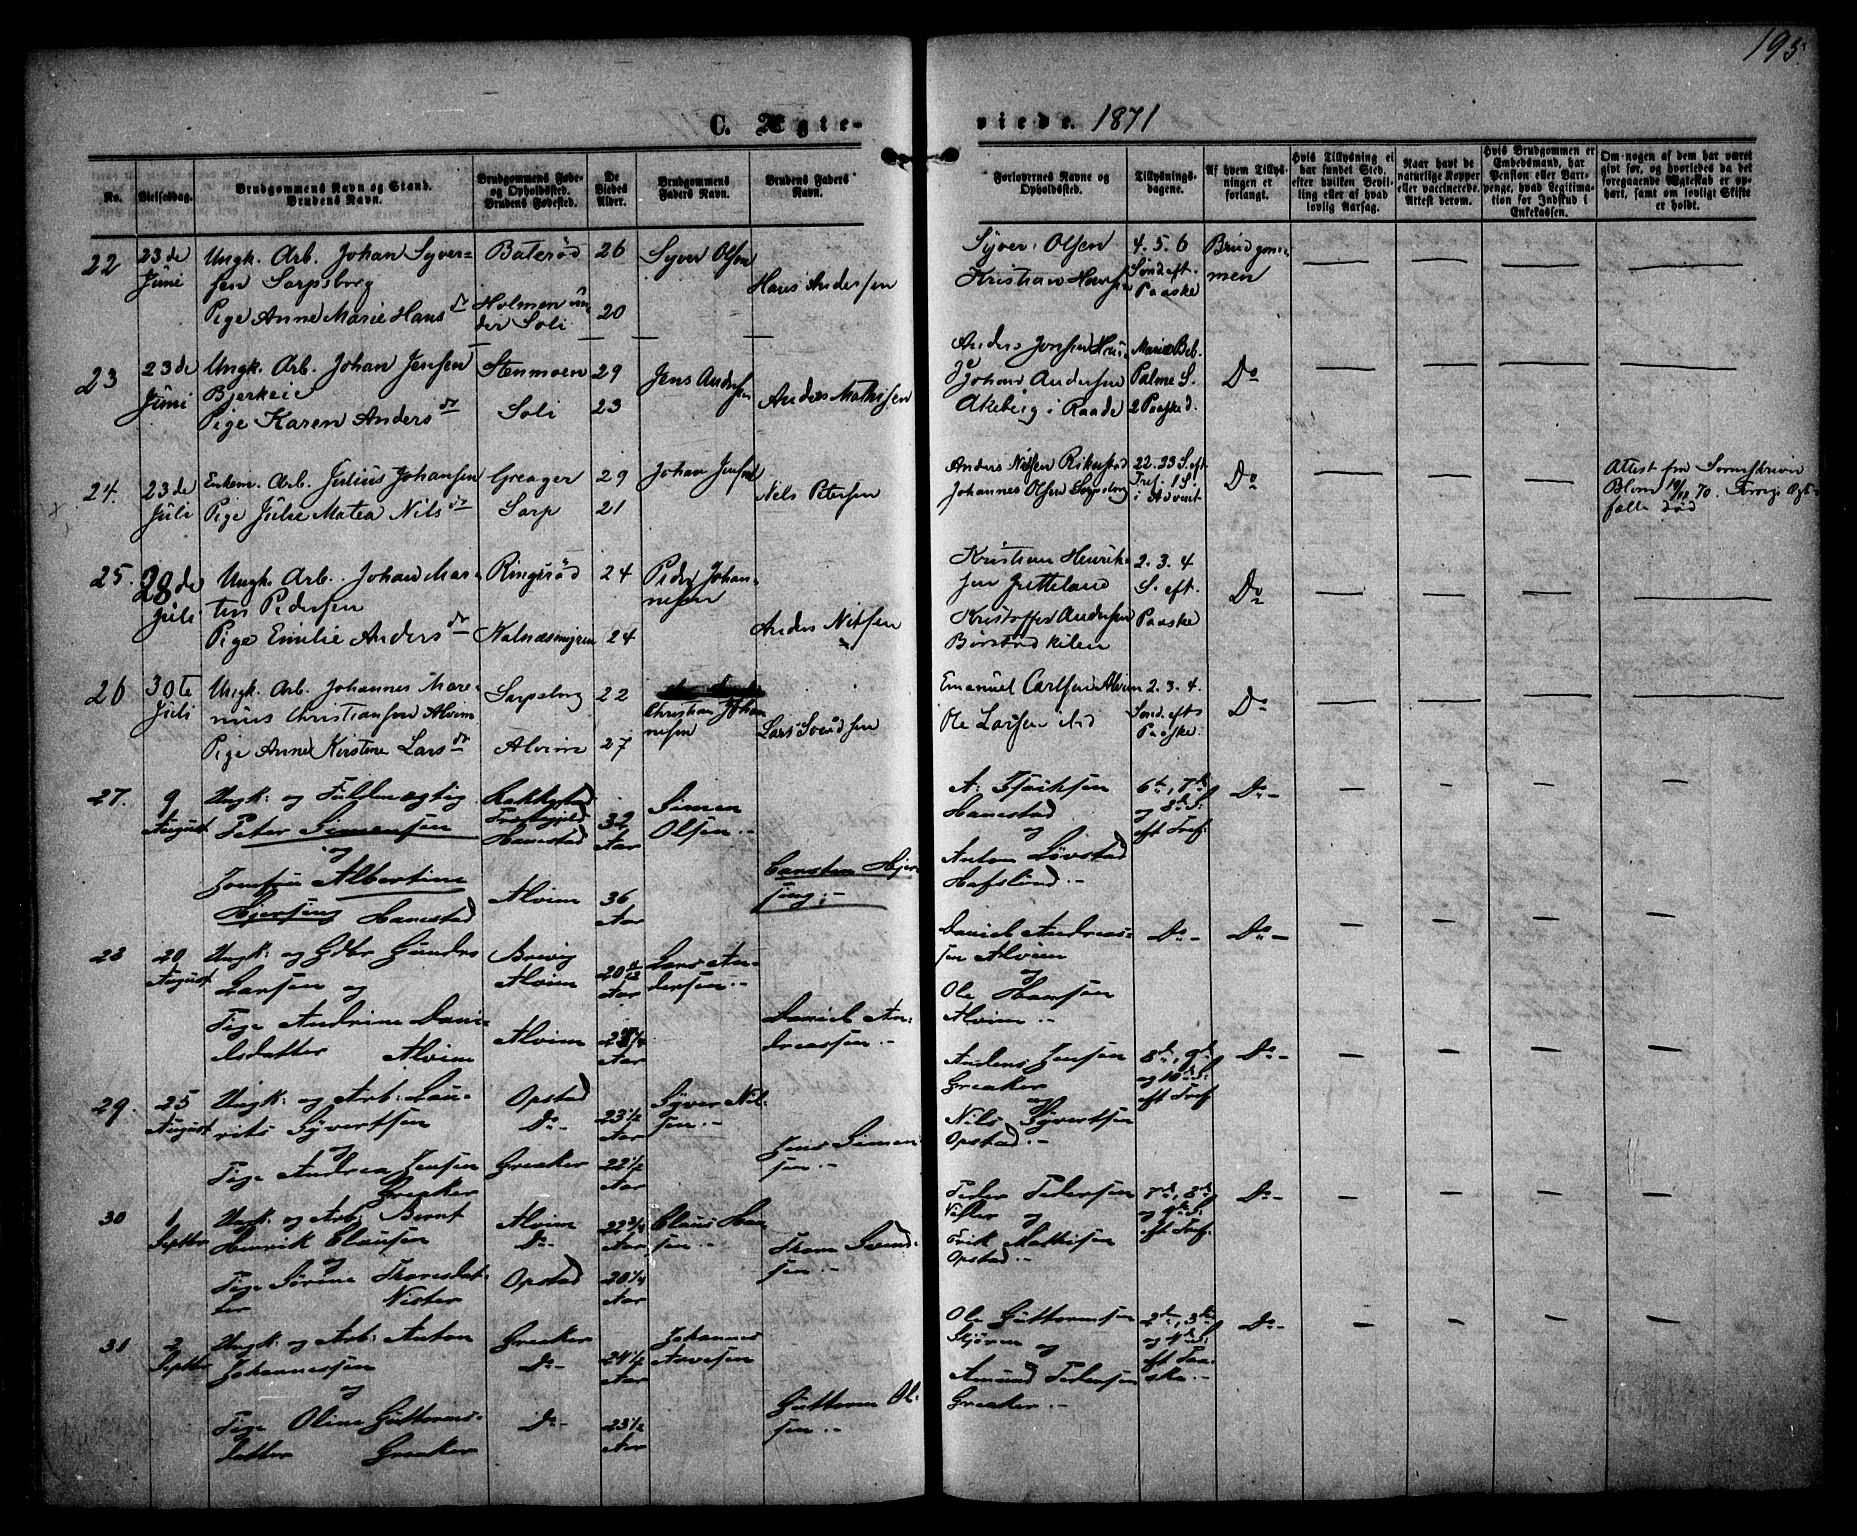 195.
C. Ægte-
viede. 1871
No.
Vielsesdag.
Brudgommens Navn og Stand.
Brudens Navn.
Brudgommens Føde-
og Opholdssted.
Brudens Fødested.
De
Viedes
Alder.
Brudgommens
Faders Navn.
Brudens Faders
Navn.
Forlovernes Navne og
Opholdssted.
Tillysnings-
dagene.
Af hvem Tillys-
ningen er
forlangt.
Hvis Tillysning ei
har fundet Sted,
efter hvilken Bevil-
ling eller af hvad
lovlig Aarsag.
Naar havt de
naturlige Kopper
eller vaccinerede.
Attest derom.
Hvis Brudgommen er
Embedsmand, har
Pension eller Vart-
penge, hvad Legitima-
tion for Indskud i
Enkekassen.
Om nogen af dem har været
gift før, og hvorledes da det
foregaaende Ægteskab er op-
hørt, samt om lovligt Skifte
er holdt.
22
23de
Juni
Ungk. Arb. Johan Syver-
sen Sarpsborg
Pige Anne Marie Hansdr
Baterød
Holmen un-
der Soli
26
20
Syver Olsen
Hans Andersen
Syver Olsen
Kristian Hansen
4. 5. 6
Sønd eft.
Paaske
Brudgom-
men
23
23de
Juni
Ungk. Arb. Johan Jensen
Bjerkeie
Pige Karen Andersdr
Stenmoen
Soli
29
23
Jens Andersen
Anders Mathisen
Anders Jensen
Johans Andersen
Akeberg i Raade
Mariæ Beb.
Palme S.
2 Paasked.
Do
24.
23de
Juli
Enkem. Arb. Julius Johansen
Pige Julie Matea Nilsdr
Greager
Sarp
29
21
Johan Jensen
Nils Petersen
Anders Nilsen Rikestad
Johannes Olsen Sarpsborg
22. 23 S. eft
Tref. 1 S.
i Advent
Do
Attest fra
Blom 19/11 70. Forrige Ægte-
fælle død
25.
28de
Juli
Ungk. Arb. Johan Mar-
tin Pedersen
Pige Emilie Andersdr
Ringsrød
Kalnæsmyren
24
24
Peder Johan-
nesen
Anders Nilsen
Kristian Henrik-
sen Gretteland
Kristoffer Andersen
Børstadkilen
2. 3. 4
S. eft.
Paaske
Do
26
30te
Juli
Ungk. Arb. Johannes Mare-
nius Christiansen Alvim
Pige Anne Kirstine Larsdr
Sarpsborg
Alvim
22
27
Christian Johan-
nesen
Lars Svendsen
Emanuel Carlsen Alvim
Ole Larsen ibd
2. 3. 4.
Sønd. eft
Paaske.
Do
27.
9
August
Ungk: og Fuldmægtig
Peter Simensen
og
Jomfru Albertine
Hjersing Hanestad
Rakkestad
Præstegjeld
Hanestad
Alvim
32
Aar
36
Aar
Simen
Olsen.-
Carsten Hjer-
sing:-
A. Isaksen
Hanestad
og
Anton Løvstad
Hafslund.-
6te, 7de
og 8de S:
eft Tref:
Do-
28
20
August
Ungk: og Gdbr Gunder
Larsen og
Pige Andrine Dani-
elsdatter Alvim
Brevig
Alvim
Alvim
20 11/12
Aar
Aar
Lars An-
dersen.-
Daniel An-
dreassen.-
Daniel Andreas-
sen Alvim
og
Ole Hansen
Alvim.-
Do-
Do-
29.
25
August
Ungk: og Arb: Lau-
rits Syvertsen
og
Pige Andrea Jensen
Greaker
Opstad
Do-
Greaker
23 1/2
Aar
22 1/2
Aar
Syver Nil-
sen.-
Jens Simen-
sen.-
Anders Jensen
Greaker
og
Nils Syvertsen
Opstad.-
8de, 9de
og 10de S:
eft Tref
Do-
30
1
Septbr
Ungk: og Arb: Bernt
Henrik Clausen
og
Pige Sørine Thoresdat-
ter Nister
Alvim
Do-
Opstad
22 3/4
Aar
20 1/4
Aar
Claus Han-
sen.-
Thore Svend-
sen.-
Peder Pedersen
Nister og
Erik Mathisen
Opstad.-
7de, 8de
og 9de S:
eft Tref.
Do-
31
2
Septbr
Ungk: og Arb: Anton
Johannessen
og
Pige Oline Guttorms-
datter Greaker
Greaker
Do-
Do-
24 1/2
Aar
23 1/2
Aar
Johannes
Arvesen
Guttorm Ol-
sen.-
Ole Guttormsen
og
Amund Pedersen
Greaker.-
2den, 3die
og 4de S:
eft Paa-
ske.-
Do-